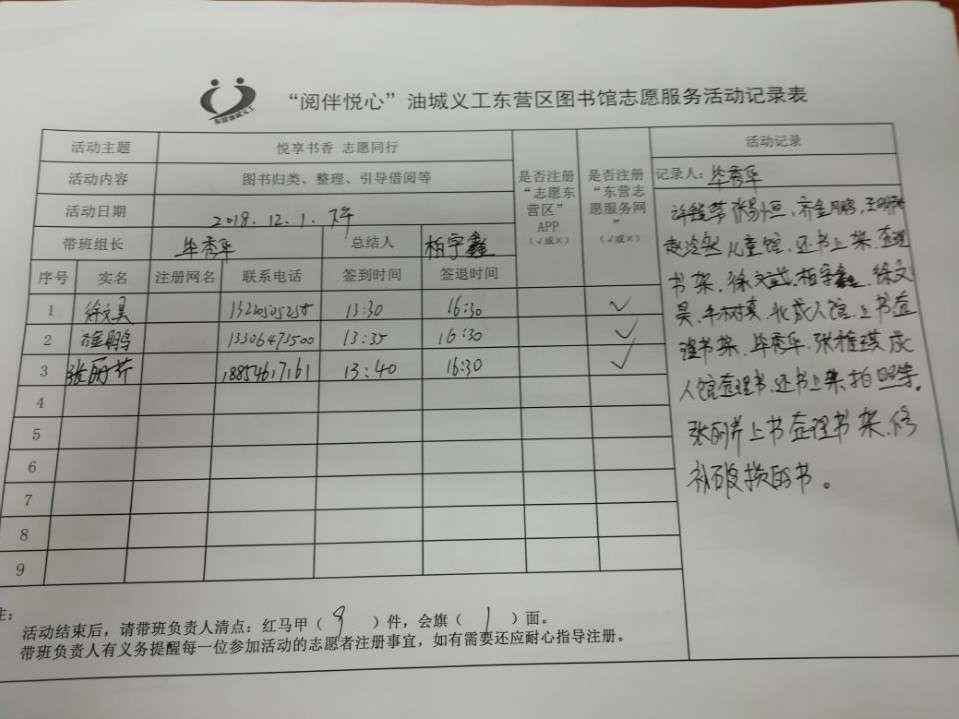 “阅伴悦心”油城义工东营区图书馆志愿服务活动记录表
活动主题 悦享书香 志愿同行
活动内容 图书归类、整理、引导借阅等
活动日期 2018.12.1.下午
带班组长 毕秀华 总结人 柏宇鑫
是否注册“志愿东营区”APP（√或×）
是否注册“东营志愿服务网”（√或×）
序号 实名 注册网名 联系电话 签到时间 签退时间
1 徐文昊 13:30 16:30 ✓
2 鹏 13306473500 13:35 16:30 ✓
3 张丽芹 18854617161 13:40 16:30 ✓
4
5
6
7
8
9
活动记录
记录人：毕秀华
赵冷然儿童馆，还书上架，查理
书架，徐文，柏宇鑫，徐文
昊，成人馆，上书查
理书架，毕秀华，张雅琪成
人馆查理书，还书上架，拍照等。
张丽芹上书查理书架，修
补破损的书。
注：
活动结束后，请带班负责人清点：红马甲（9）件，会旗（1）面。
带班负责人有义务提醒每一位参加活动的志愿者注册事宜，如有需要还应耐心指导注册。